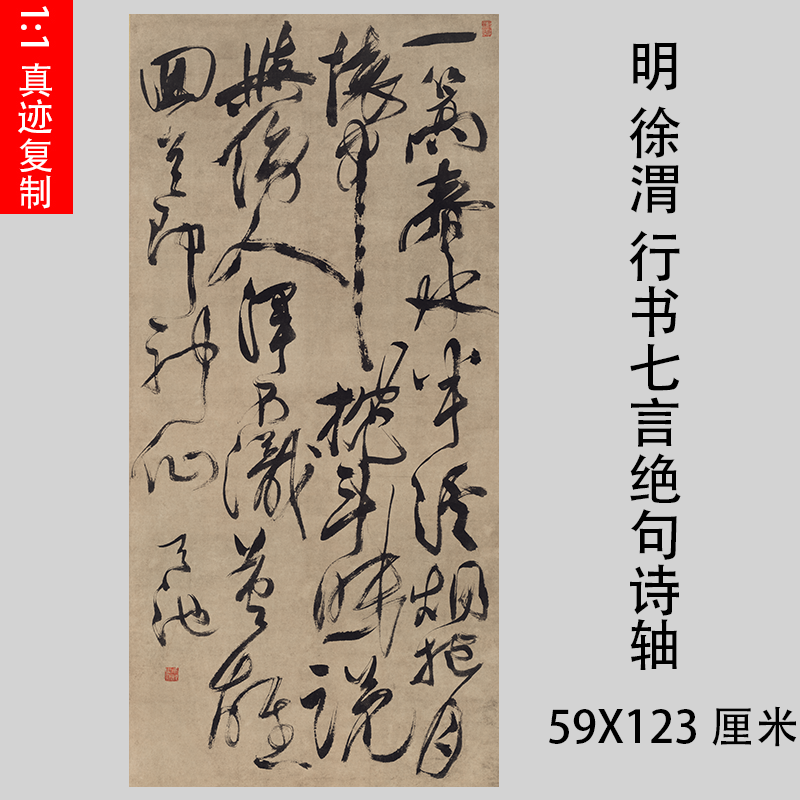 1:1 真迹复制
一篙春水半溪烟抱月
懷中枕斗眠說
與傍人渾不識英雄
回首即神仙 天池
明 徐渭 行书七言绝句诗轴
59X123 厘米